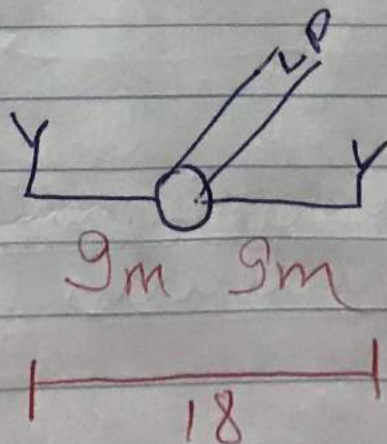 LP
9m 9m
18